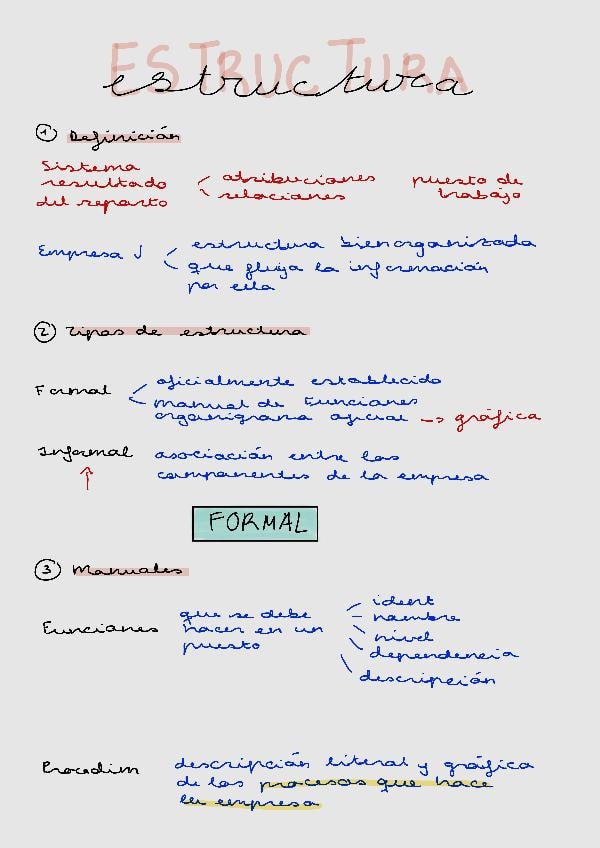 ESTRUCTURA
estructura
1 Definición
Sistema
resultado
del reparto
atribuciones
relaciones
puesto de
trabajo
Empresa ↓
estructura bien organizada
que fluya la información
por ella
2 Tipos de estructura
Formal
oficialmente establecido
manual de Funciones
organigrama oficial → gráfica
Informal
↑
asociación entre los
componentes de la empresa
FORMAL
3 Manuales
Funciones
que se debe
hacer en un
puesto
ident
nombre
nivel
dependencia
descripción
Procedim
descripción literal y gráfica
de los procesos que hace
la empresa